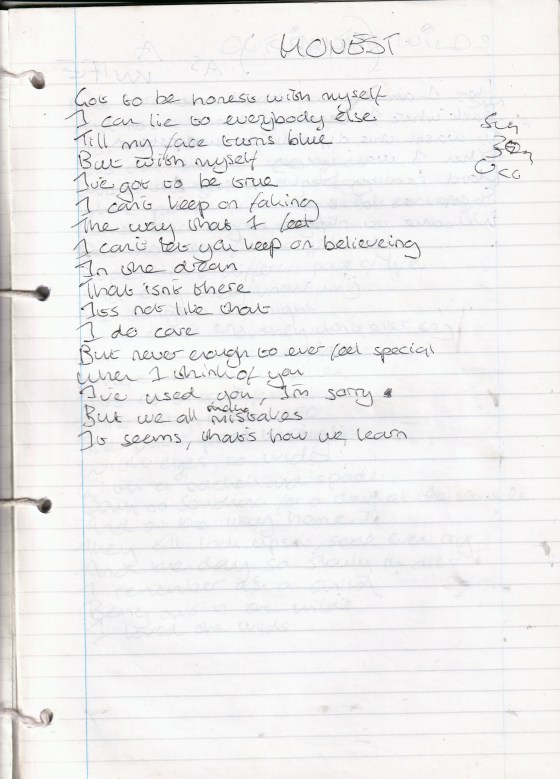 HONEST
Got to be honest with myself
I can lie to everybody else
Till my face turns blue
But with myself
I've got to be true
I can't keep on faking
The way that I feel
I can't let you keep on believeing
In the dream
That isn't there
It's not like that
I do care
But never enough to ever feel special
when I think of you
I've used you, I'm sorry
But we all make mistakes
It seems, that's how we learn